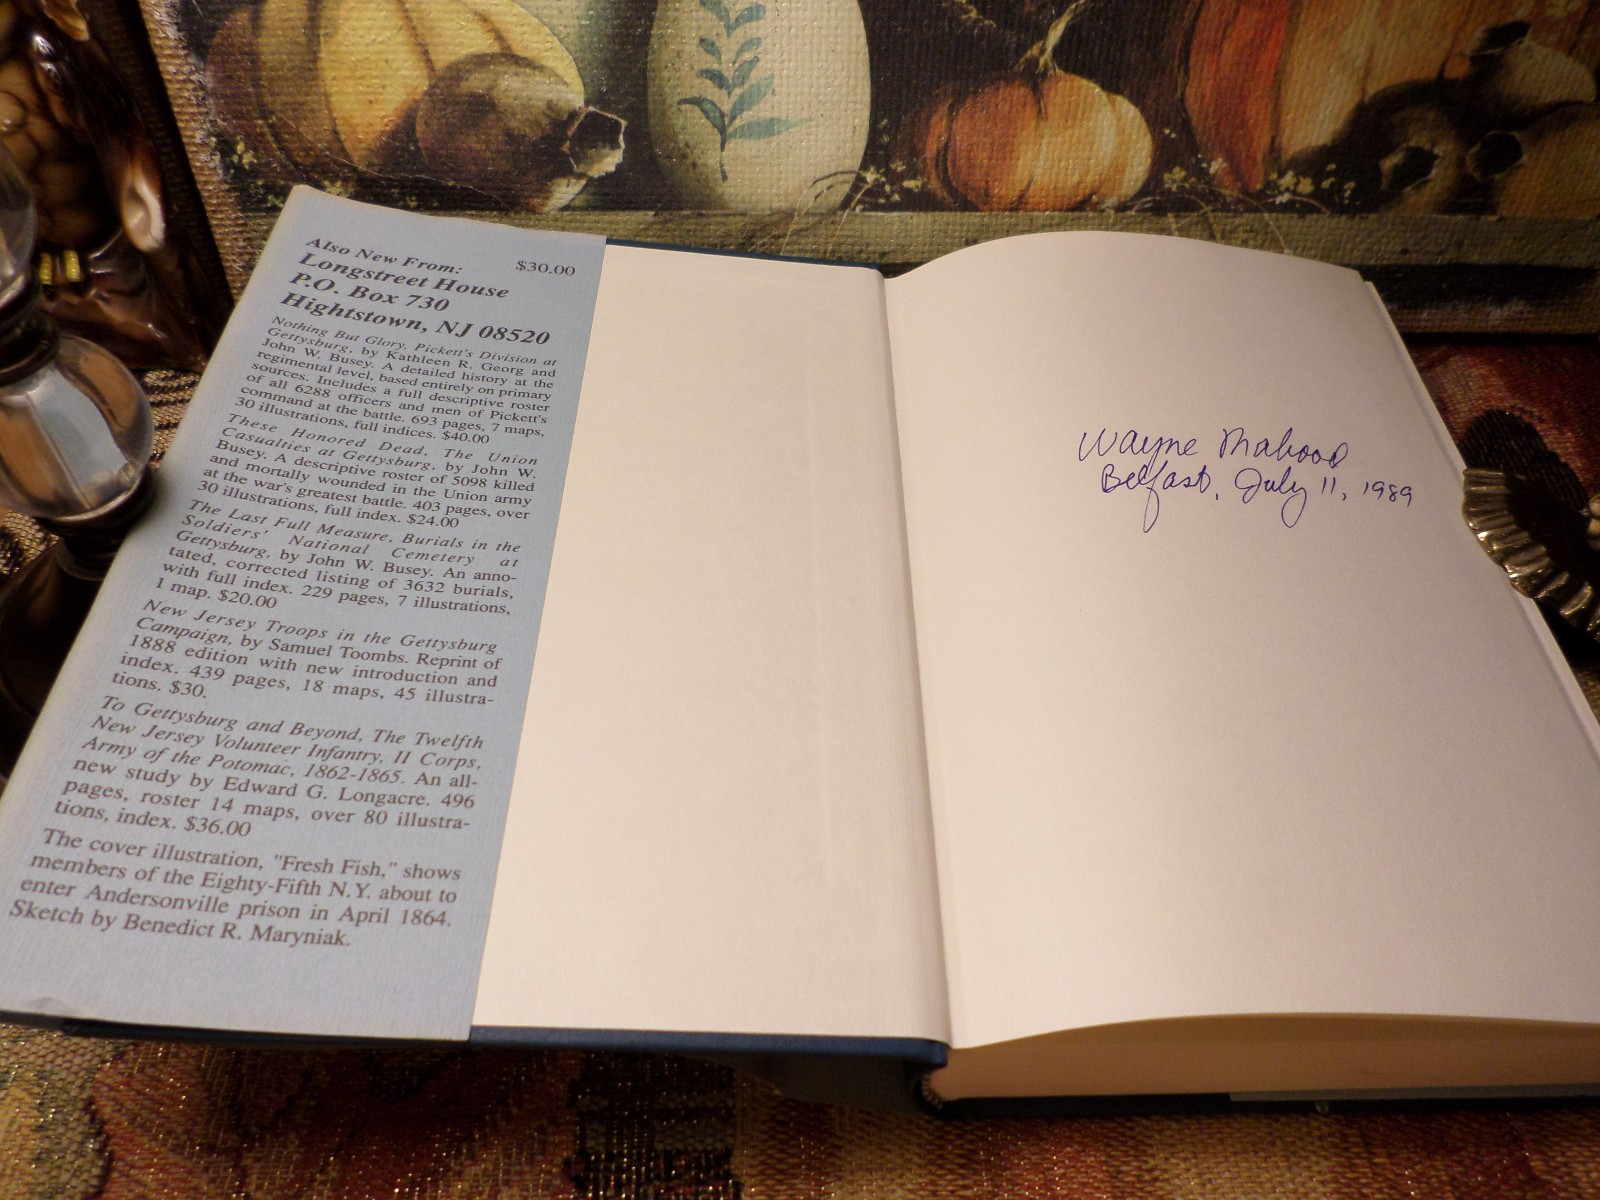 Also New From:
$30.00
Longstreet House
P.O. Box 730
Hightstown, NJ 08520
Nothing But Glory, Pickett's Division at
Gettysburg, by Kathleen R. Georg and
John W. Busey. A detailed history at the
regimental level, based entirely on primary
sources. Includes a full descriptive roster
of all 6288 officers and men of Pickett's
command at the battle. 693 pages, 7 maps,
30 illustrations, full indices. $40.00
These Honored Dead, The Union
Casualties at Gettysburg, by John W.
Busey. A descriptive roster of 5098 killed
and mortally wounded in the Union army
at the war's greatest battle. 403 pages, over
30 illustrations, full index. $24.00
The Last Full Measure, Burials in the
Soldiers' National Cemetery at
Gettysburg, by John W. Busey. An anno-
tated, corrected listing of 3632 burials,
with full index. 229 pages, 7 illustrations,
1 map. $20.00
New Jersey Troops in the Gettysburg
Campaign, by Samuel Toombs. Reprint of
1888 edition with new introduction and
index. 439 pages, 18 maps, 45 illustra-
tions. $30.
To Gettysburg and Beyond, The Twelfth
New Jersey Volunteer Infantry, II Corps,
Army of the Potomac, 1862-1865. An all-
new study by Edward G. Longacre. 496
pages, roster 14 maps, over 80 illustra-
tions, index. $36.00
The cover illustration, "Fresh Fish," shows
members of the Eighty-Fifth N.Y. about to
enter Andersonville prison in April 1864.
Sketch by Benedict R. Maryniak.
Wayne Mahood
Belfast, July 11, 1989